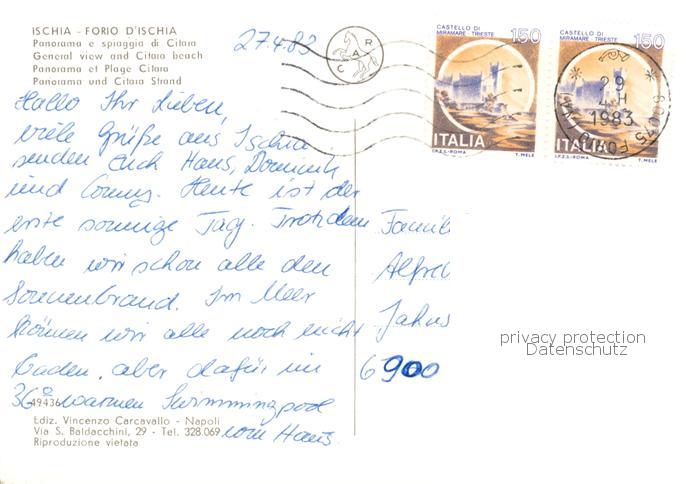 ISCHIA - FORIO D'ISCHIA
Panorama e spiaggia di Citara
General view and Citara beach
Panorama et Plage Citara
Panorama und Citara Strand
27.4.83
Hallo Ihr Lieben,
viele Grüße aus Ischia
senden Euch Hans, Dominik
und Conny. Heute ist der
erste sonnige Tag. Trotzdem
haben wir schon alle den
Sonnenbrand. Im Meer
können wir alle noch nicht
baden, aber dafür im
36° warmen Swimmingpool
vom Haus.
49436
Ediz. Vincenzo Carcavallo - Napoli
Via S. Baldacchini, 29 - Tel. 328.069
Riproduzione vietata
C A R
CASTELLO DI
MIRAMARE - TRIESTE
150
ITALIA
I.P.Z.S.-ROMA T. MELE
CASTELLO DI
MIRAMARE - TRIESTE
150
ITALIA
I.P.Z.S.-ROMA T. MELE
29
4-H
1983
80075 FORIO
Famil
Alfred
Jahns
6900
privacy protection
Datenschutz